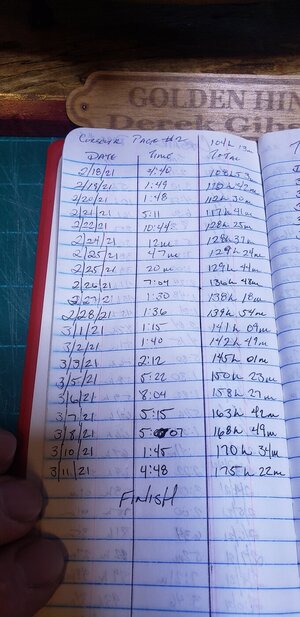 GOLDEN HIN
Derek Gib
PAGE #2 104h 13m
DATE TIME TOTAL
2/18/21 4:40 108h 53m
2/19/21 1:49 110h 42m
2/20/21 1:48 112h 30m
2/21/21 5:11 117h 41m
2/22/21 10:44 128h 25m
2/24/21 12m 128h 37m
2/25/21 47m 129h 24m
2/25/21 20m 129h 44m
2/26/21 7:04 136h 48m
2/27/21 1:30 138h 18m
2/28/21 1:36 139h 54m
3/1/21 1:15 141h 09m
3/2/21 1:40 142h 49m
3/3/21 2:12 145h 01m
3/5/21 5:22 150h 23m
3/6/21 8:04 158h 27m
3/7/21 5:15 163h 42m
3/8/21 5:07 168h 49m
3/10/21 1:45 170h 34m
3/11/21 4:48 175h 22m
FINISH